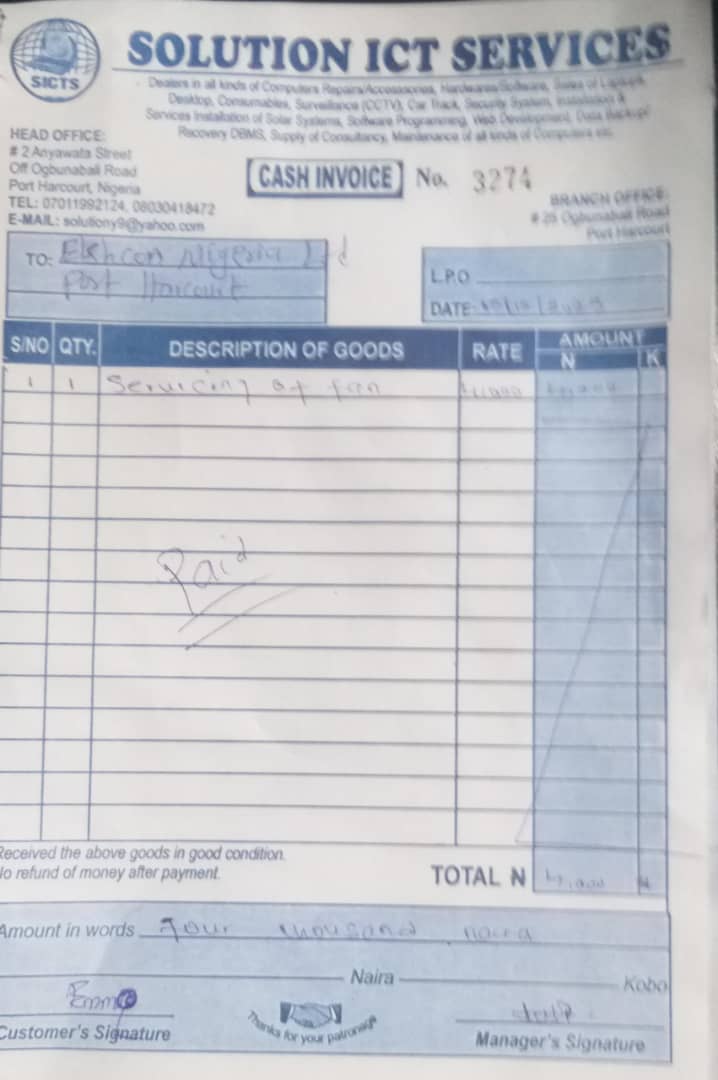 SICTS
SOLUTION ICT SERVICES
Dealers in all kinds of Computers Repairs/Accessories, Hardwares/Software, Sales of Laptops,
Desktop, Consumables, Surveillance (CCTV), Car Track, Security System, Installation &
Services Installation of Solar Systems, Software Programming, Web Development, Data Backup/
Recovery DBMS, Supply of Consultancy, Maintenance of all kinds of Computers etc.
HEAD OFFICE:
# 2 Anyawata Street
Off Ogbunabali Road
Port Harcourt, Nigeria
TEL: 07011992124, 08030418472
E-MAIL: solutiony9@yahoo.com
CASH INVOICE No. 3274
BRANCH OFFICE:
# 25 Ogbunabali Road
Port Harcourt
TO: Nigeria Ltd
Port Harcourt
L.P.O
DATE:
S/NO QTY. DESCRIPTION OF GOODS RATE AMOUNT
N K
1 1 Servicing of fan
Paid
Received the above goods in good condition.
No refund of money after payment.
TOTAL N
Amount in words Four thousand naira
Naira Kobo
Customer's Signature
Thanks for your patronage
Manager's Signature